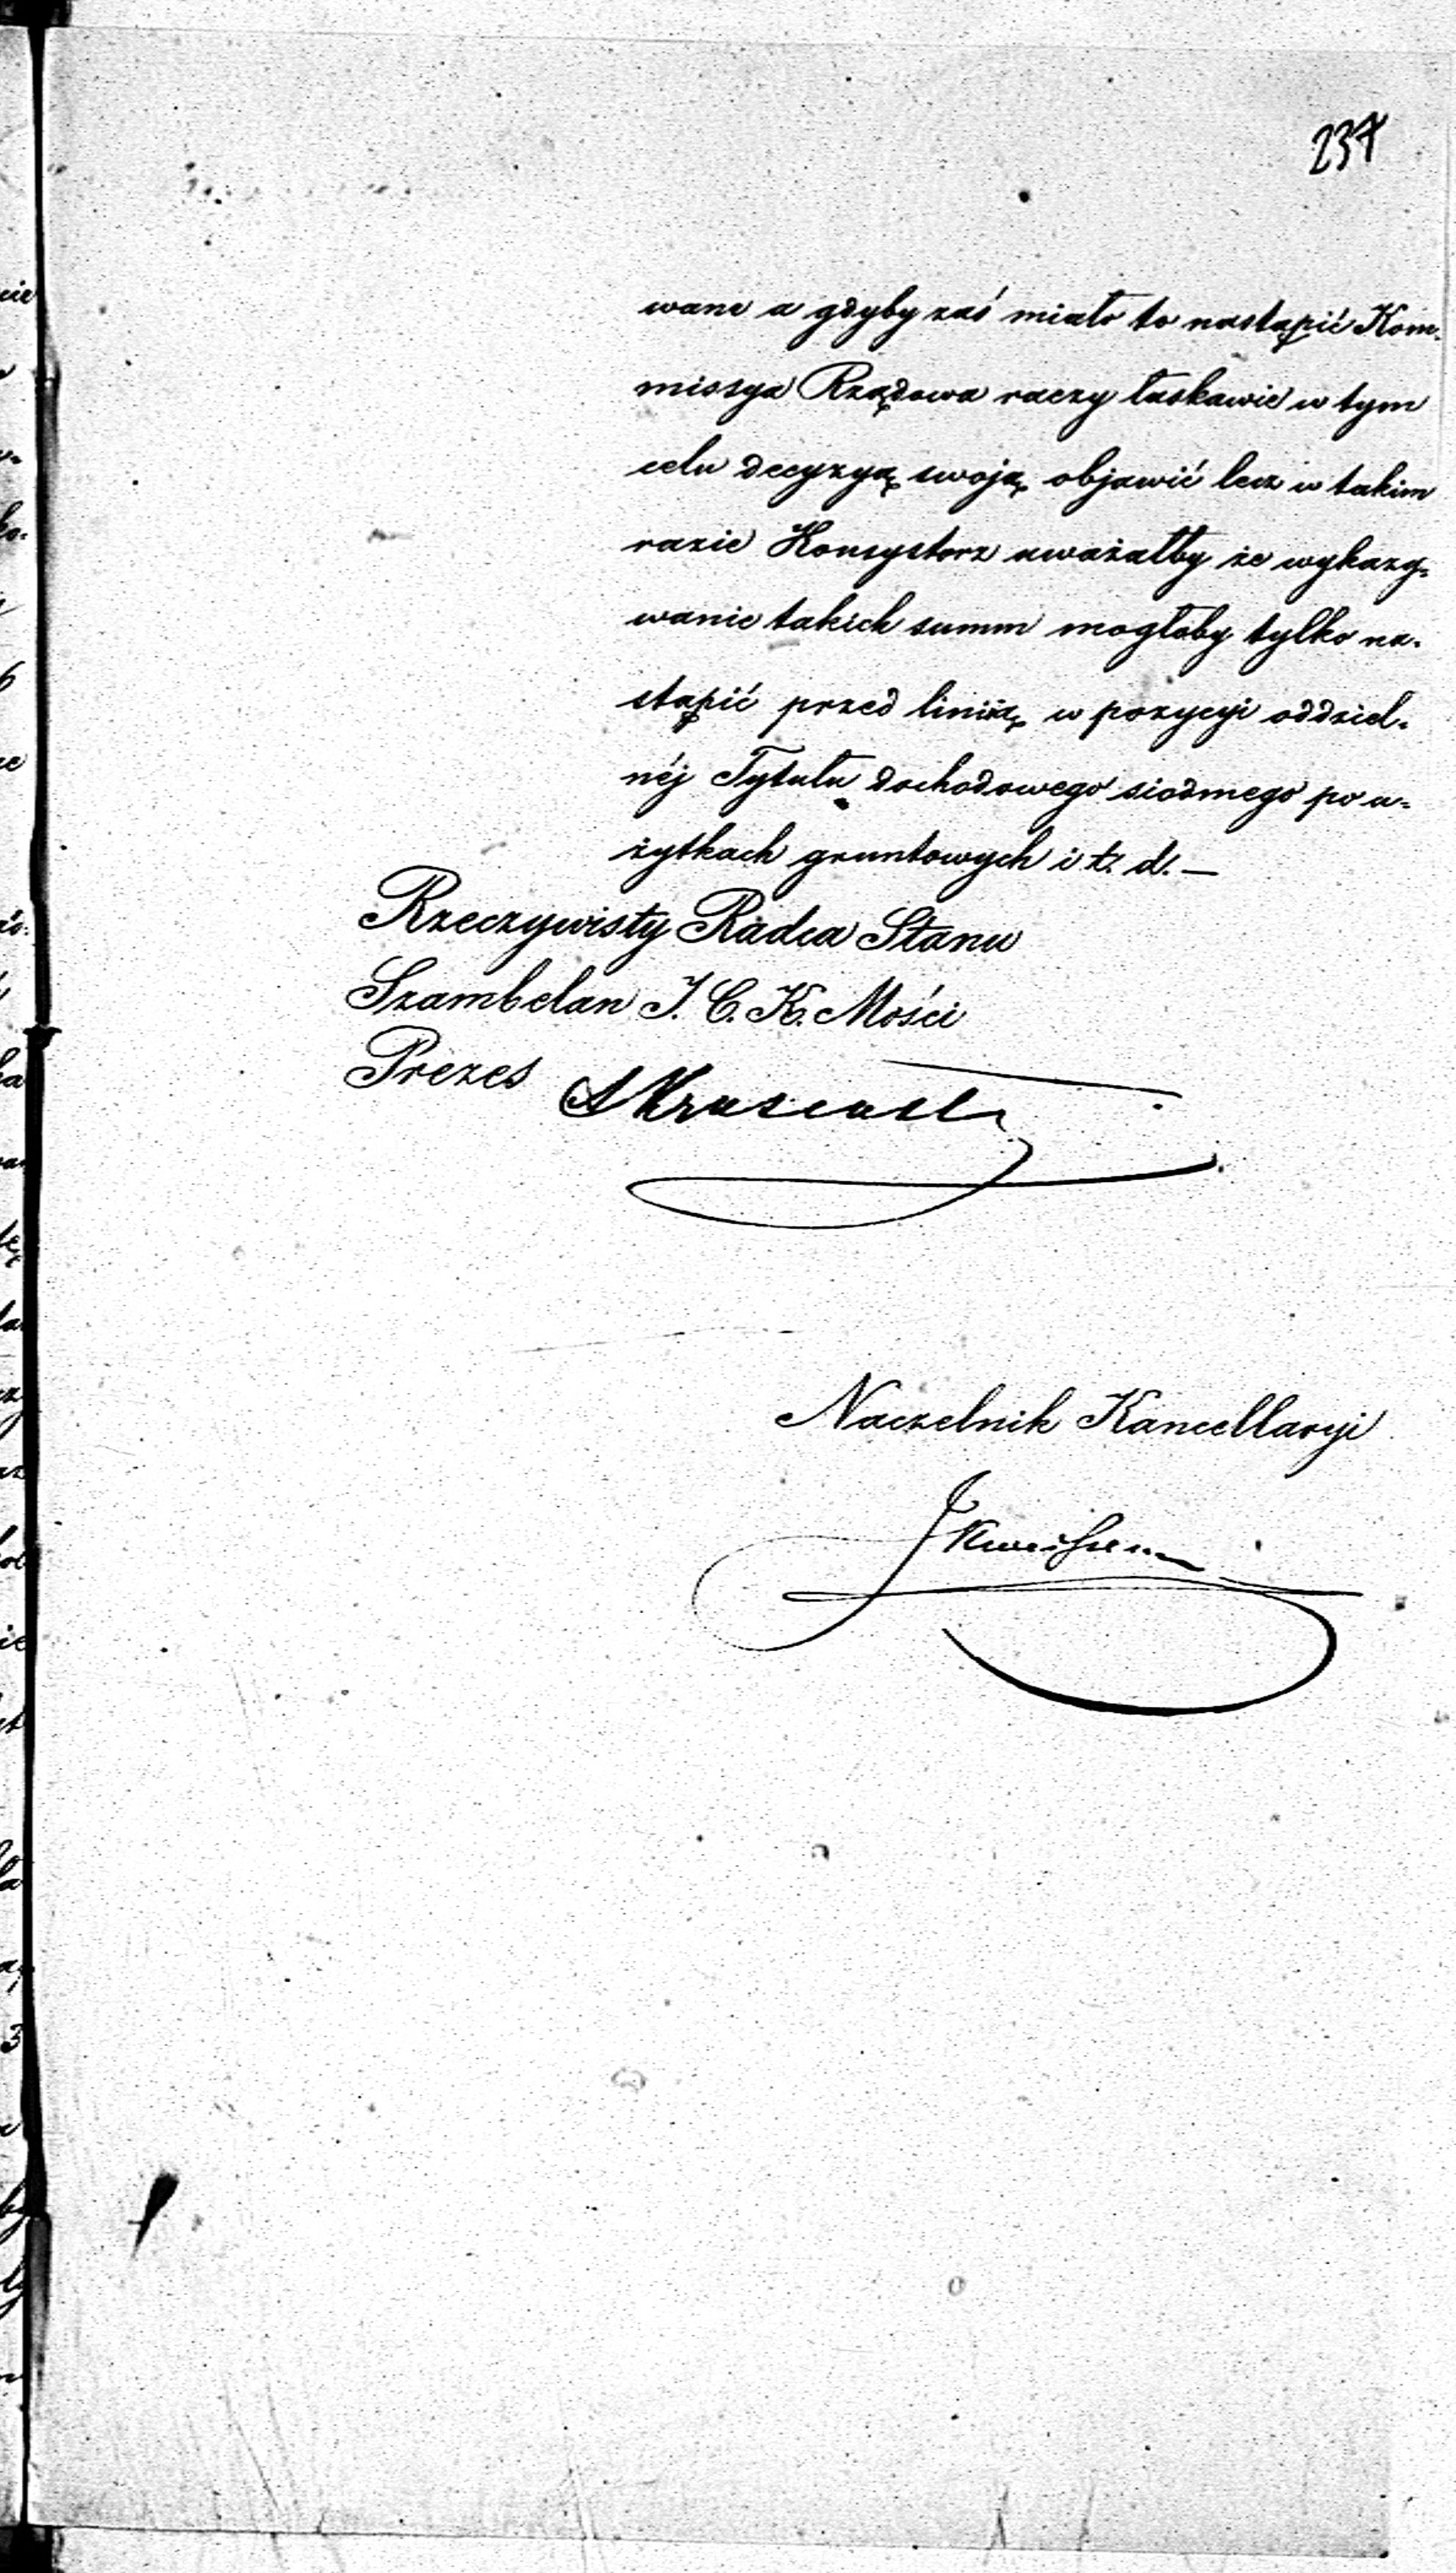 237
wane a gdyby zaś miało to nastąpić Kom-
missya Rządowa raczy łaskawie w tym
celu decyzyą swoją objawić lecz w takim
razie Konsystorz uważałby że wykazy-
wanie takich summ mogłoby tylko na-
stąpić przed liniią w pozycyi oddziel-
néj Tytułu dochodowego siódmego po u-
żytkach gruntowych i t. d. —
Rzeczywisty Radca Stanu
Szambelan J. C. K. Mości
Prezes
Naczelnik Kancellaryi